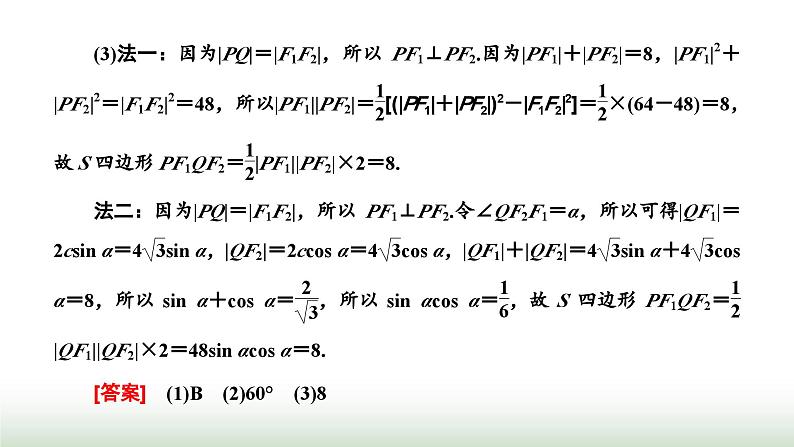 (3)法一：因为|PQ|＝|F₁F₂|，所以 PF₁⊥PF₂.因为|PF₁|＋|PF₂|＝8，|PF₁|²＋
|PF₂|²＝|F₁F₂|²＝48，所以|PF₁||PF₂|＝1/2[(|PF₁|＋|PF₂|)²－|F₁F₂|²]＝1/2×(64－48)＝8，
故 S 四边形 PF₁QF₂＝1/2|PF₁||PF₂|×2＝8.
法二：因为|PQ|＝|F₁F₂|，所以 PF₁⊥PF₂.令∠QF₂F₁＝α，所以可得|QF₁|＝
2csin α＝4√3sin α，|QF₂|＝2ccos α＝4√3cos α，|QF₁|＋|QF₂|＝4√3sin α＋4√3cos
α＝8，所以 sin α＋cos α＝2/√3，所以 sin αcos α＝1/6，故 S 四边形 PF₁QF₂＝1/2
|QF₁||QF₂|×2＝48sin αcos α＝8.
[答案] (1)B (2)60° (3)8